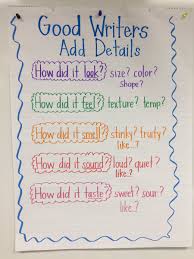 Good Writers
Add Details
How did it look? size? color?
shape?
How did it feel? texture? temp?
How did it smell? stinky? fruity?
like...?
How did it sound? loud? quiet?
like..?
How did it taste? sweet? sour?
like..?